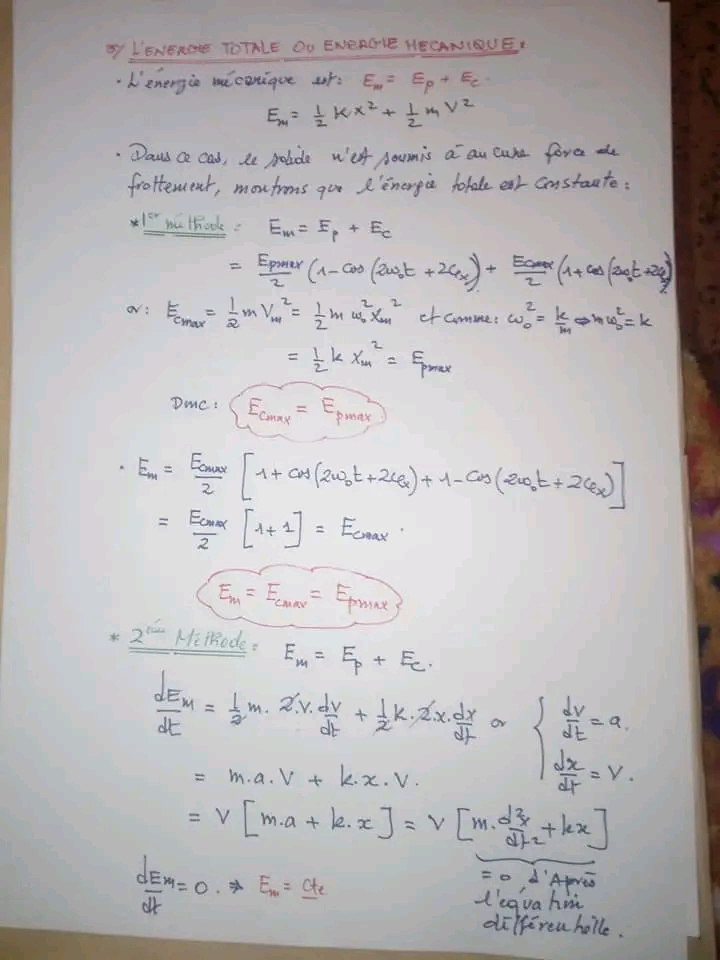 3/ L'ENERGIE TOTALE OU ENERGIE MECANIQUE:
• L'énergie mécanique est: Em = Ep + Ec.
Em = 1/2 k x² + 1/2 m V²
• Dans ce cas, le solide n'est soumis à aucune force de
frottement, montrons que l'énergie totale est constante:
* 1ère méthode: Em = Ep + Ec
= Epmax/2 (1 - cos(2ω₀t + 2φx)) + Ecmax/2 (1 + cos(2ω₀t + 2φx))
or: Ecmax = 1/2 m Vm² = 1/2 m ω₀² Xm² et comme: ω₀² = k/m ⇒ mω₀² = k
= 1/2 k Xm² = Epmax
Donc: Ecmax = Epmax
• Em = Ecmax/2 [1 + cos(2ω₀t + 2φx) + 1 - cos(2ω₀t + 2φx)]
= Ecmax/2 [1 + 1] = Ecmax.
Em = Ecmax = Epmax
* 2ème Méthode: Em = Ep + Ec.
dEm/dt = 1/2 m. 2.V. dv/dt + 1/2 k. 2.x. dx/dt or { dv/dt = a.
dx/dt = V.
= m.a.V + k.x.V.
= V [m.a + k.x] = V [m. d²x/dt² + kx]
= 0 d'Après
l'équation
différentielle.
dEm/dt = 0. ⇒ Em = cte